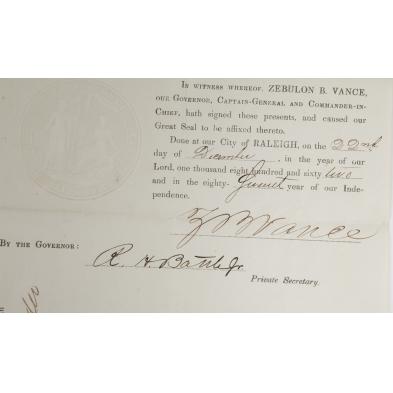 In witness whereof, ZEBULON B. VANCE,
our Governor, Captain-General and Commander-in-
Chief, hath signed those presents, and caused our
Great Seal to be affixed thereto.
Done at our City of RALEIGH, on the 22nd
day of December, in the year of our
Lord, one thousand eight hundred and sixty two
and in the eighty- year of our Inde-
pendence.
Z B Vance
By the Governor:
R. H. Battle Jr
Private Secretary.